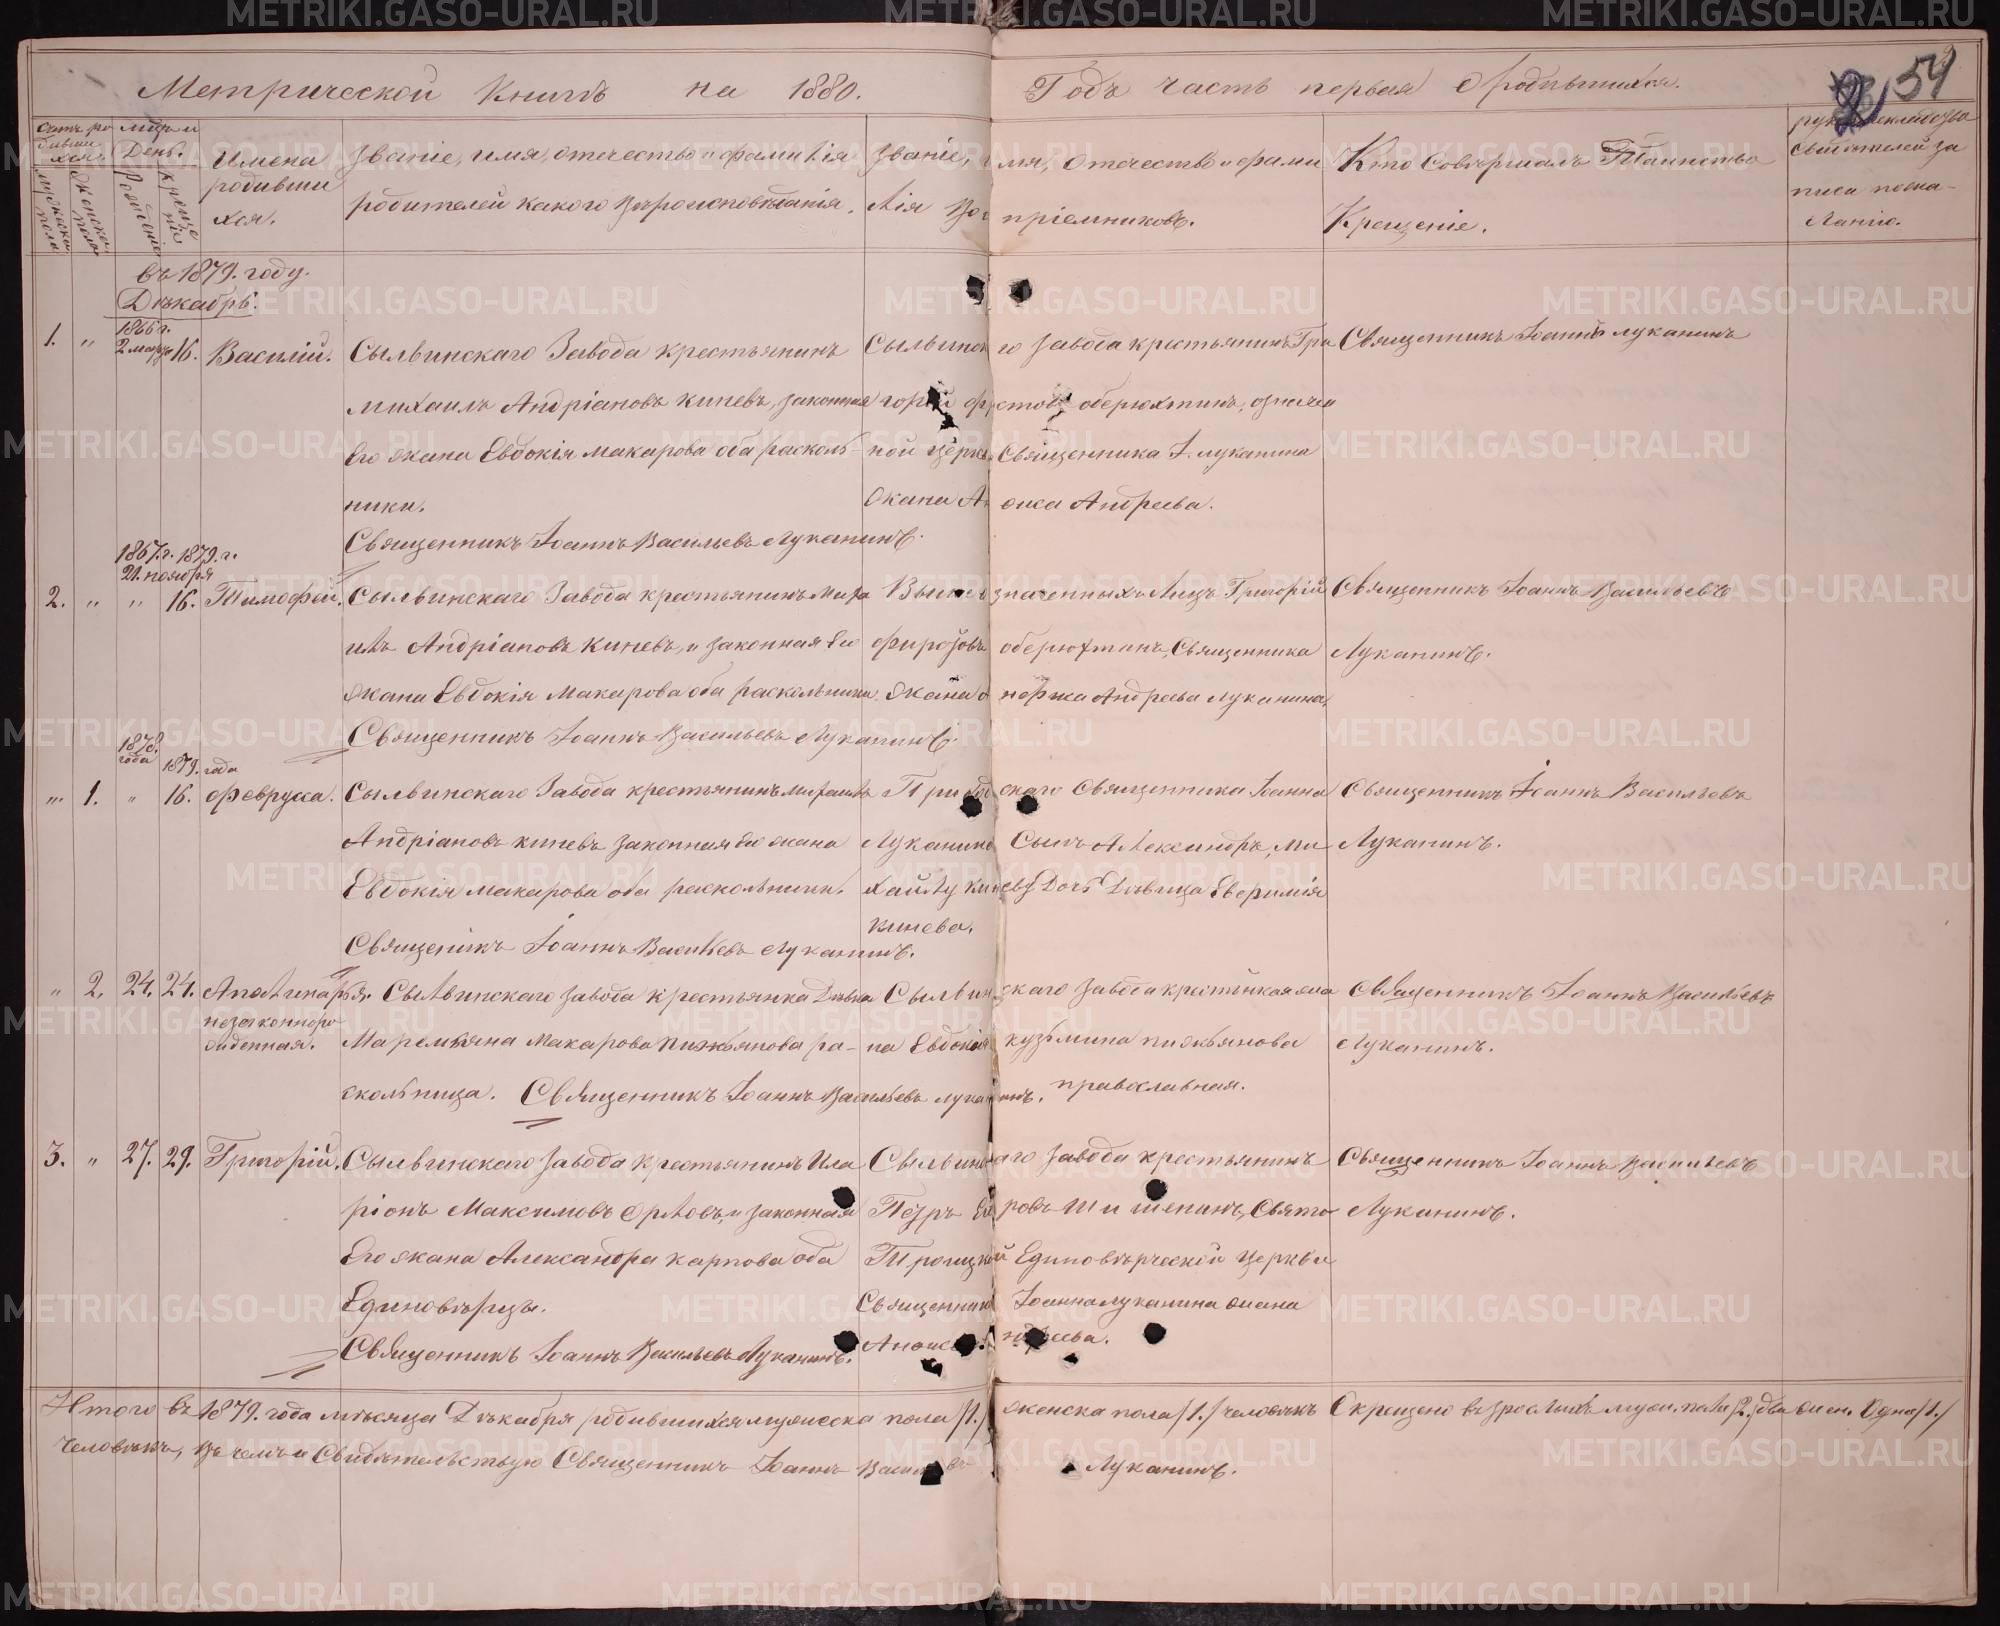 Метрической Книгѣ на 1880. Годъ часть первая О родившихся.
54
Счетъ родившихся.
мужска пола
женска пола
мѣсяцъ и День.
рожденіе
крещеніе
Имена родившихся.
Званіе, имя, отечество и фамилія
родителей какого Вѣроисповѣданія.
Званіе, имя, отечество и фамилія Воспріемниковъ.
Кто Совершалъ Таинство
Крещеніе.
свидѣтелей за
писи по жела-
ланію.
въ 1879. году.
Декабрь.
1. " 1866 г. 2 марта 16. Василій.
Сылвинскаго Завода крестьянинъ
Михаилъ Андріановъ Киневъ, законная
Его жена Евдокія Макарова оба расколь-
ники.
Священникъ Іоаннъ Васильевъ Луканинъ.
го завода крестьянинъ Гри
горій
ной церкви Священника І. Луканина
Жена Андреева.
Священникъ Іоаннъ Луканинъ
1867. г. 1879. г.
21. ноября
2. " " 16. Тимофей.
Сылвинскаго Завода крестьянинъ Миха
илъ Андріановъ Киневъ, и законная Его
жена Евдокія Макарова оба раскольники
Священникъ Іоаннъ Васильевъ Луканинъ.
значенныхъ Лицъ Григорій
Священника
жена Андреева Луканина.
Священникъ Іоаннъ Васильевъ
Луканинъ.
1878. года
1879. года
" 1. " 16. Февруса.
Сылвинскаго Завода крестьянинъ михаилъ
Андріановъ киневъ законная Его жена
Евдокія Макарова оба раскольники.
Священникъ Іоаннъ Васильевъ Луканинъ.
скаго Священника Іоанна
Луканина Сынъ Александръ, Ми
хайлу Кинева Дочь Дѣвица Евфимія
Кинева.
Священникъ Іоаннъ Васильевъ
Луканинъ.
" 2. 24. 24. Аполинарія.
незаконнорожденная.
Сылвинскаго завода крестьянка Дѣвка
Маремьяна Макарова Пижьянова ра-
скольница. Священникъ Іоаннъ Васильевъ Луканинъ.
Сылвинскаго завода крестьянская же
на Евдокія кузьмина пижьянова
православная.
Священникъ Іоаннъ Васильевъ
Луканинъ.
3. " 27. 29. Григорій.
Сылвинскаго завода крестьянинъ Ила
ріонъ Максимовъ Орловъ, и законная
Его жена Александра карпова оба
Единовѣрцы.
Священникъ Іоаннъ Васильевъ Луканинъ.
Сылвинскаго завода крестьянинъ
Петръ Шишенинъ, Свято
Троицкой Единовѣрческой Церкви
Священника Іоанна Луканина жена
Андреева.
Священникъ Іоаннъ Васильевъ
Луканинъ.
Итого въ 1879. года мѣсяца Декабря родившихся мужеска пола /1./ женска пола /1./ человѣкъ Окрещено взрослыхъ муж. пола /2./ два жен. Одна /1./
человѣкъ, въ чемъ и Свидѣтельствую Священникъ Іоаннъ Васильевъ Луканинъ.
METRIKI.GASO-URAL.RU